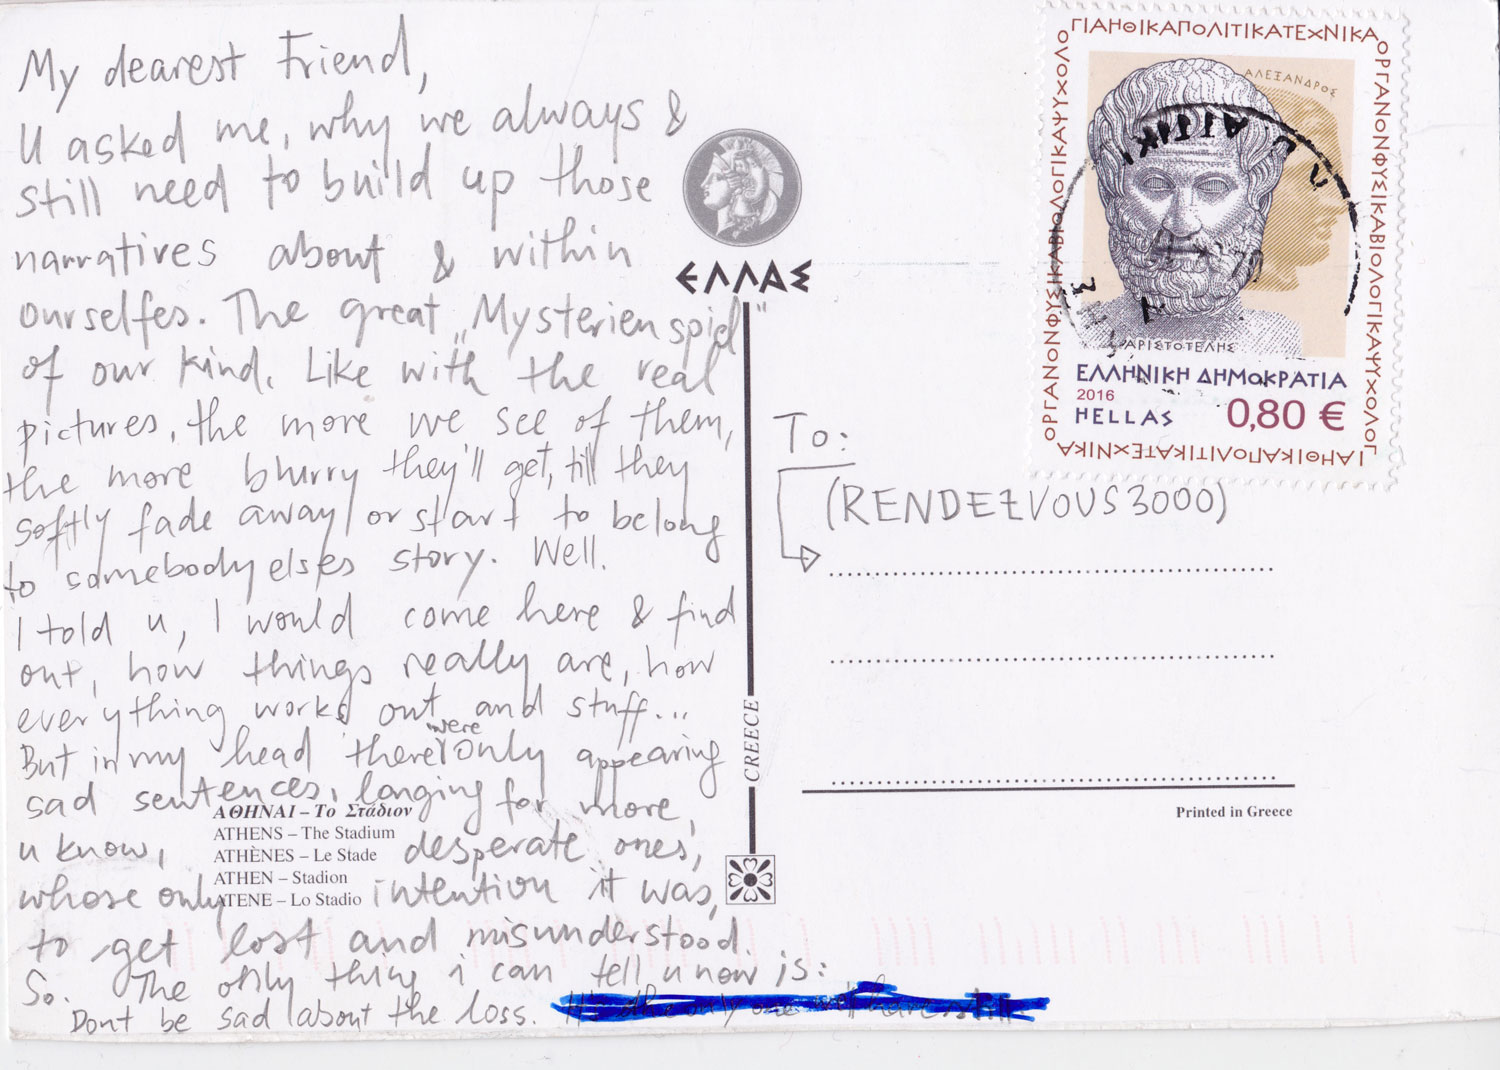 My dearest Friend,
u asked me, why we always &
still need to build up those
narratives about & within
ourselfes. The great „Mysterienspiel"
of our kind. Like with the real
pictures, the more we see of them,
the more blurry they'll get, till they
softly fade away or start to belong
to somebody elses story. Well.
I told u, I would come here & find
out, how things really are, how
everything works out and stuff...
But in my head there were only appearing
sad sentences, longing for more,
u know, desperate ones,
whose only intention it was,
to get lost and misunderstood.
So. The only thing i can tell u now is:
Dont be sad about the loss.
ΑΘΗΝΑΙ – Το Στάδιον
ATHENS – The Stadium
ATHÈNES – Le Stade
ATHEN – Stadion
ATENE – Lo Stadio
ΕΛΛΑΣ
GREECE
ΓΙΑΗΘΙΚΑΠΟΛΙΤΙΚΑΤΕΧΝΙΚΑ
ΟΡΓΑΝΟΝΦΥΣΙΚΑΒΙΟΛΟΓΙΚΑΨΥΧΟΛΟ
ΟΡΓΑΝΟΝΦΥΣΙΚΑΒΙΟΛΟΓΙΚΑΨΥΧΟΛΟΓ
ΙΑΗΘΙΚΑΠΟΛΙΤΙΚΑΤΕΧΝΙΚΑ
ΑΛΕΞΑΝΔΡΟΣ
ΑΡΙΣΤΟΤΕΛΗΣ
ΕΛΛΗΝΙΚΗ ΔΗΜΟΚΡΑΤΙΑ
2016
HELLAS 0,80 €
To:
(RENDEZVOUS3000)
Printed in Greece